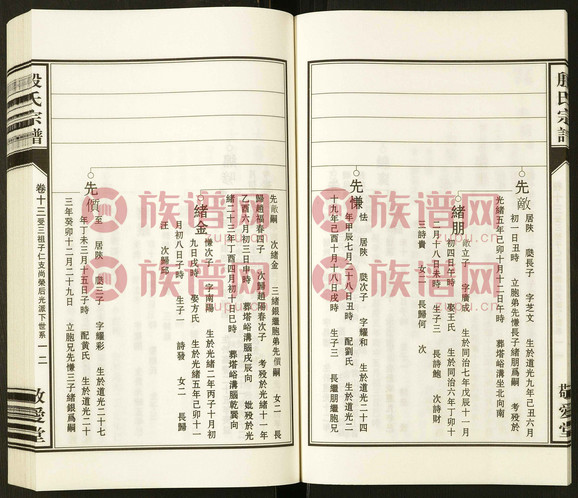 殷氏宗譜
敬愛堂
先敵
居陜 奬長子 字芝文 生於道光九年己丑六月
初一日丑時 立胞弟先慊長子緒朋爲嗣 考歿於
光緒五年己卯十月十二日午時 葬塔峪溝坐北向南
緒朋
敵立子 字廣成 生於同治七年戊辰十一月
初四日午時 娶王氏 生於同治六年丁卯十
一月十八日未時 生子三 長詩鮑 次詩財
三詩貴 女二 長歸何 次
先慊
怯 居陜 奬次子 字耀和 生於道光二十四
年甲辰七月二十八日丑時 配劉氏 生於道光二
十九年己酉十月十八日戌時 生子三 長繼朋繼胞兄
先敵嗣 次緒金 三緒銀繼胞弟先價嗣 女二 長
歸趙福春四子 次歸趙陽春次子 考歿於光緒十一年
乙酉六月初三日申時 葬塔峪溝腦戌辰向 妣歿於光
緒二十三年丁酉四月初十日巳時 葬塔峪溝腦乾巽向
緒金
慊次子 字南陽 生於光緒二年丙子十月初
九日戌時 娶方氏 生於光緒五年己卯十一
月初八日子時 生子一 詩發 女二 長歸
汪 次歸邱
先價
至 居陜 奬三子 字耀彩 生於道光二十七
年丁未三月十五日子時 配黄氏 生於道光二十
三年癸卯十二月二十九日 立胞兄先慊三子緒銀爲嗣
殷氏宗譜
卷十三受三祖子仁支尚榮后光派下世系
一二
敬愛堂
族谱网
族谱网
族谱网
族谱网